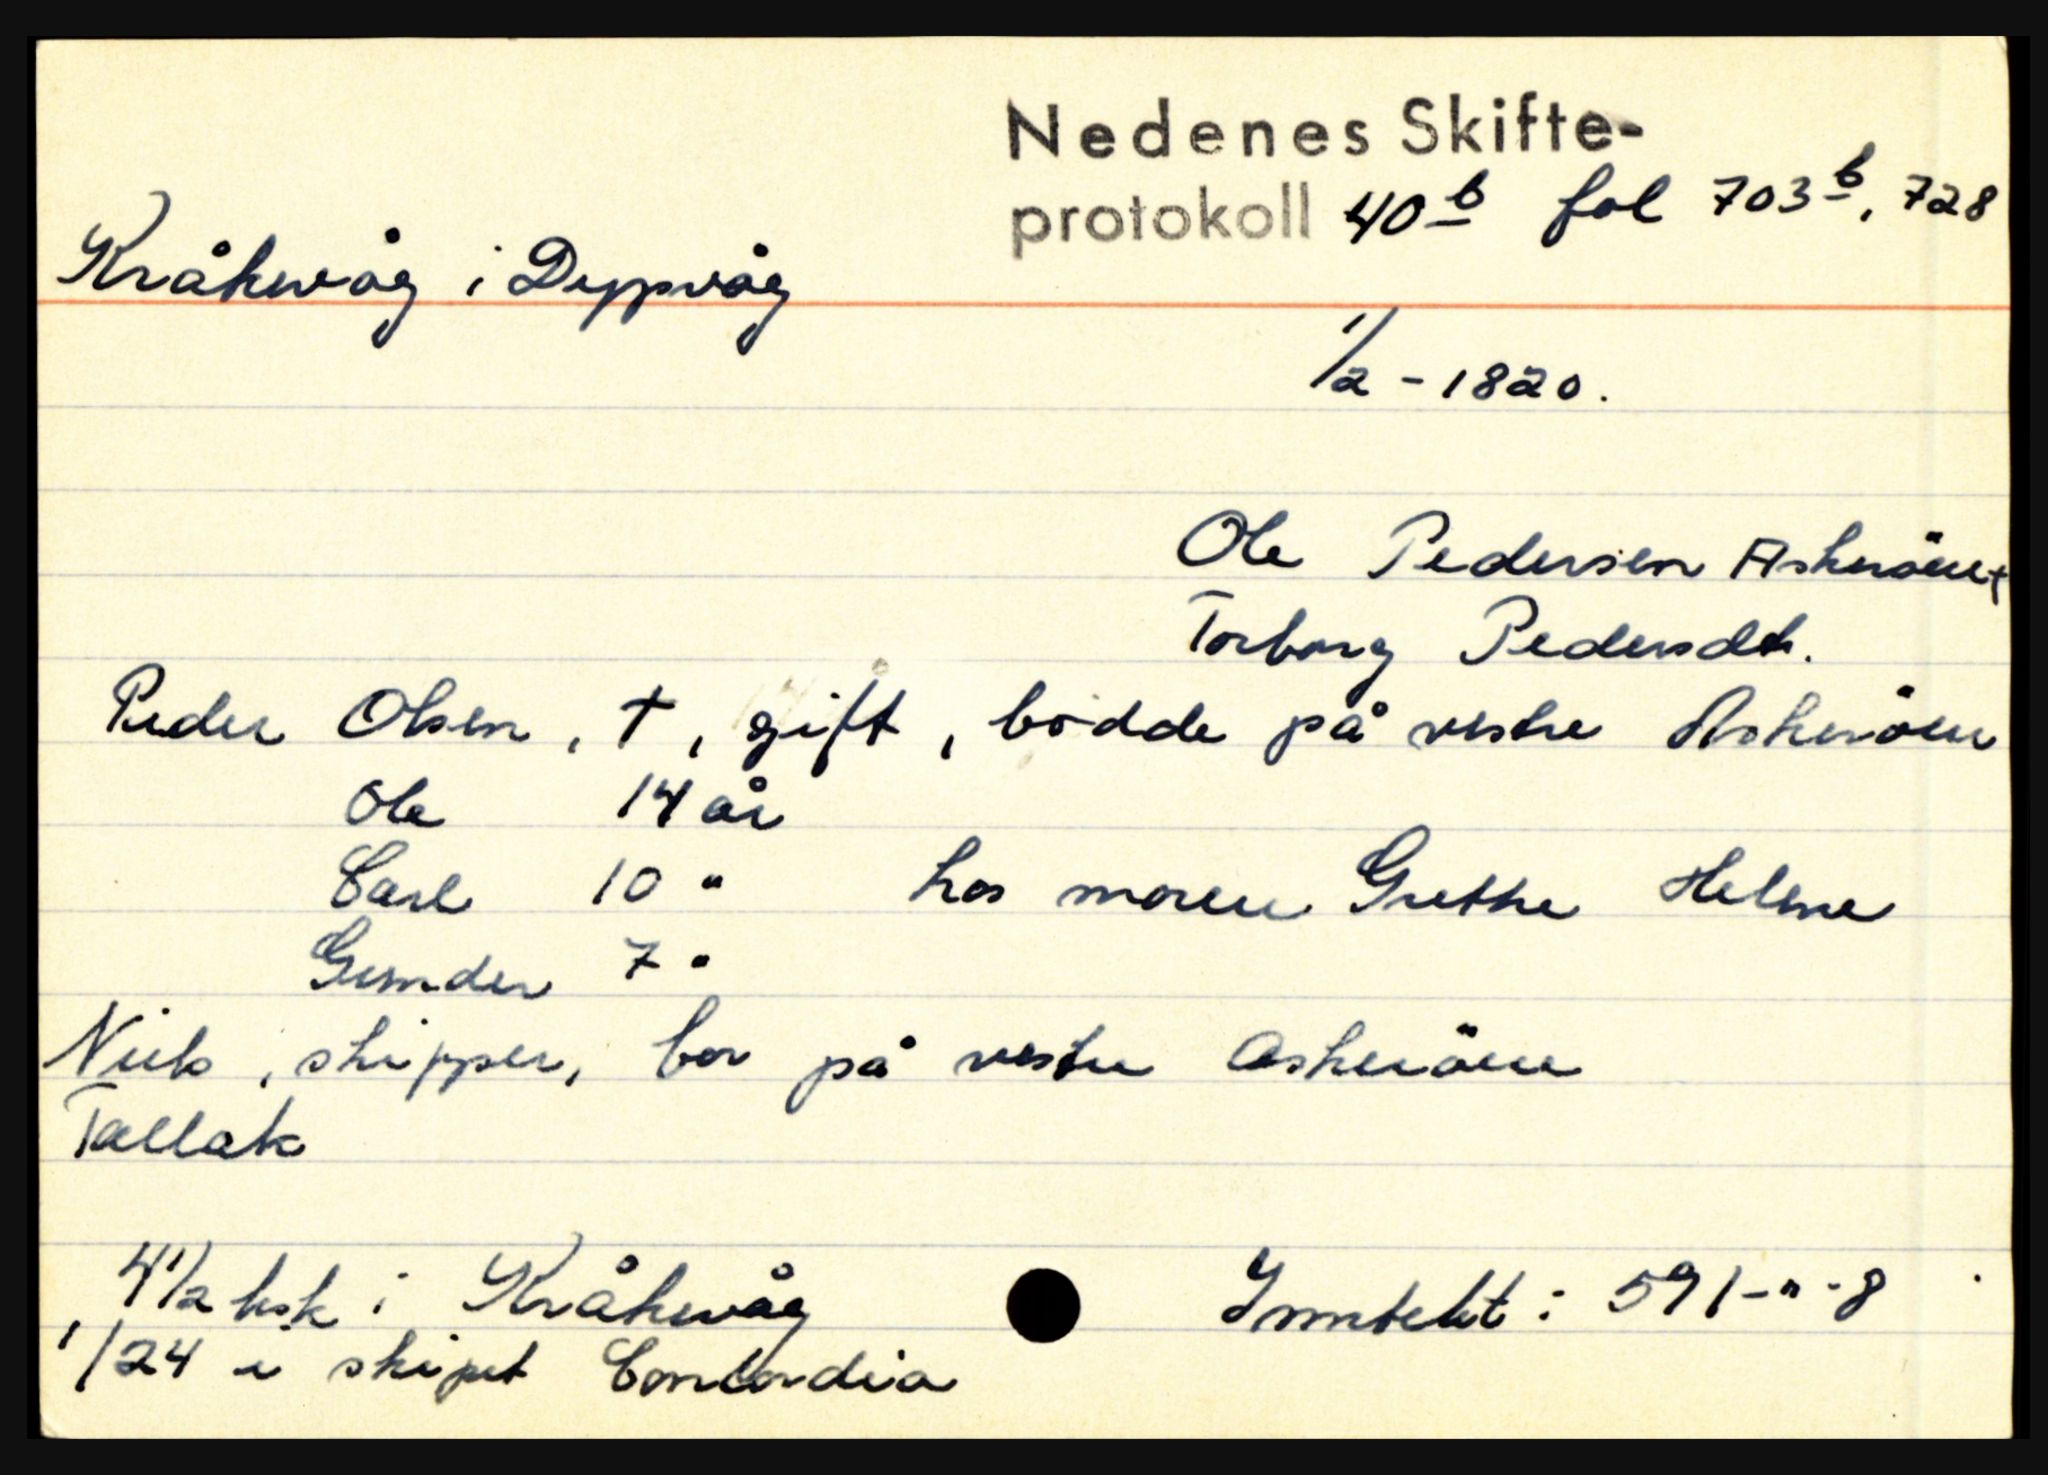 Nedenes Skifte-
protokoll 40b fol 703b, 728
Kråkevåg i Dyppvåg
1/2 - 1820.
Ole Pedersen Askerøen†
Torborg Pedersdtr.
Peder Olsen, †, gift, bodde på vestre Askerøen
Ole 14 år
Carl 10 " hos moren Grethe Helene
Gunder 7 "
Niels, skipper, bor på vestre Askerøen
Tallak
4 1/2 ksk i Kråkevåg Inntekt: 591-"-8
1/24 i skipet Concordia